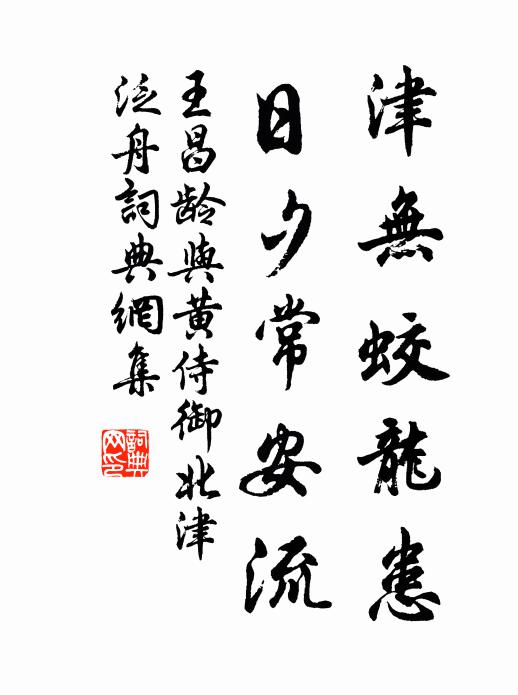 津無蛟龍患
日夕常安流
王昌齡與黃侍御北津
泛舟詞典網集
詞典
网印